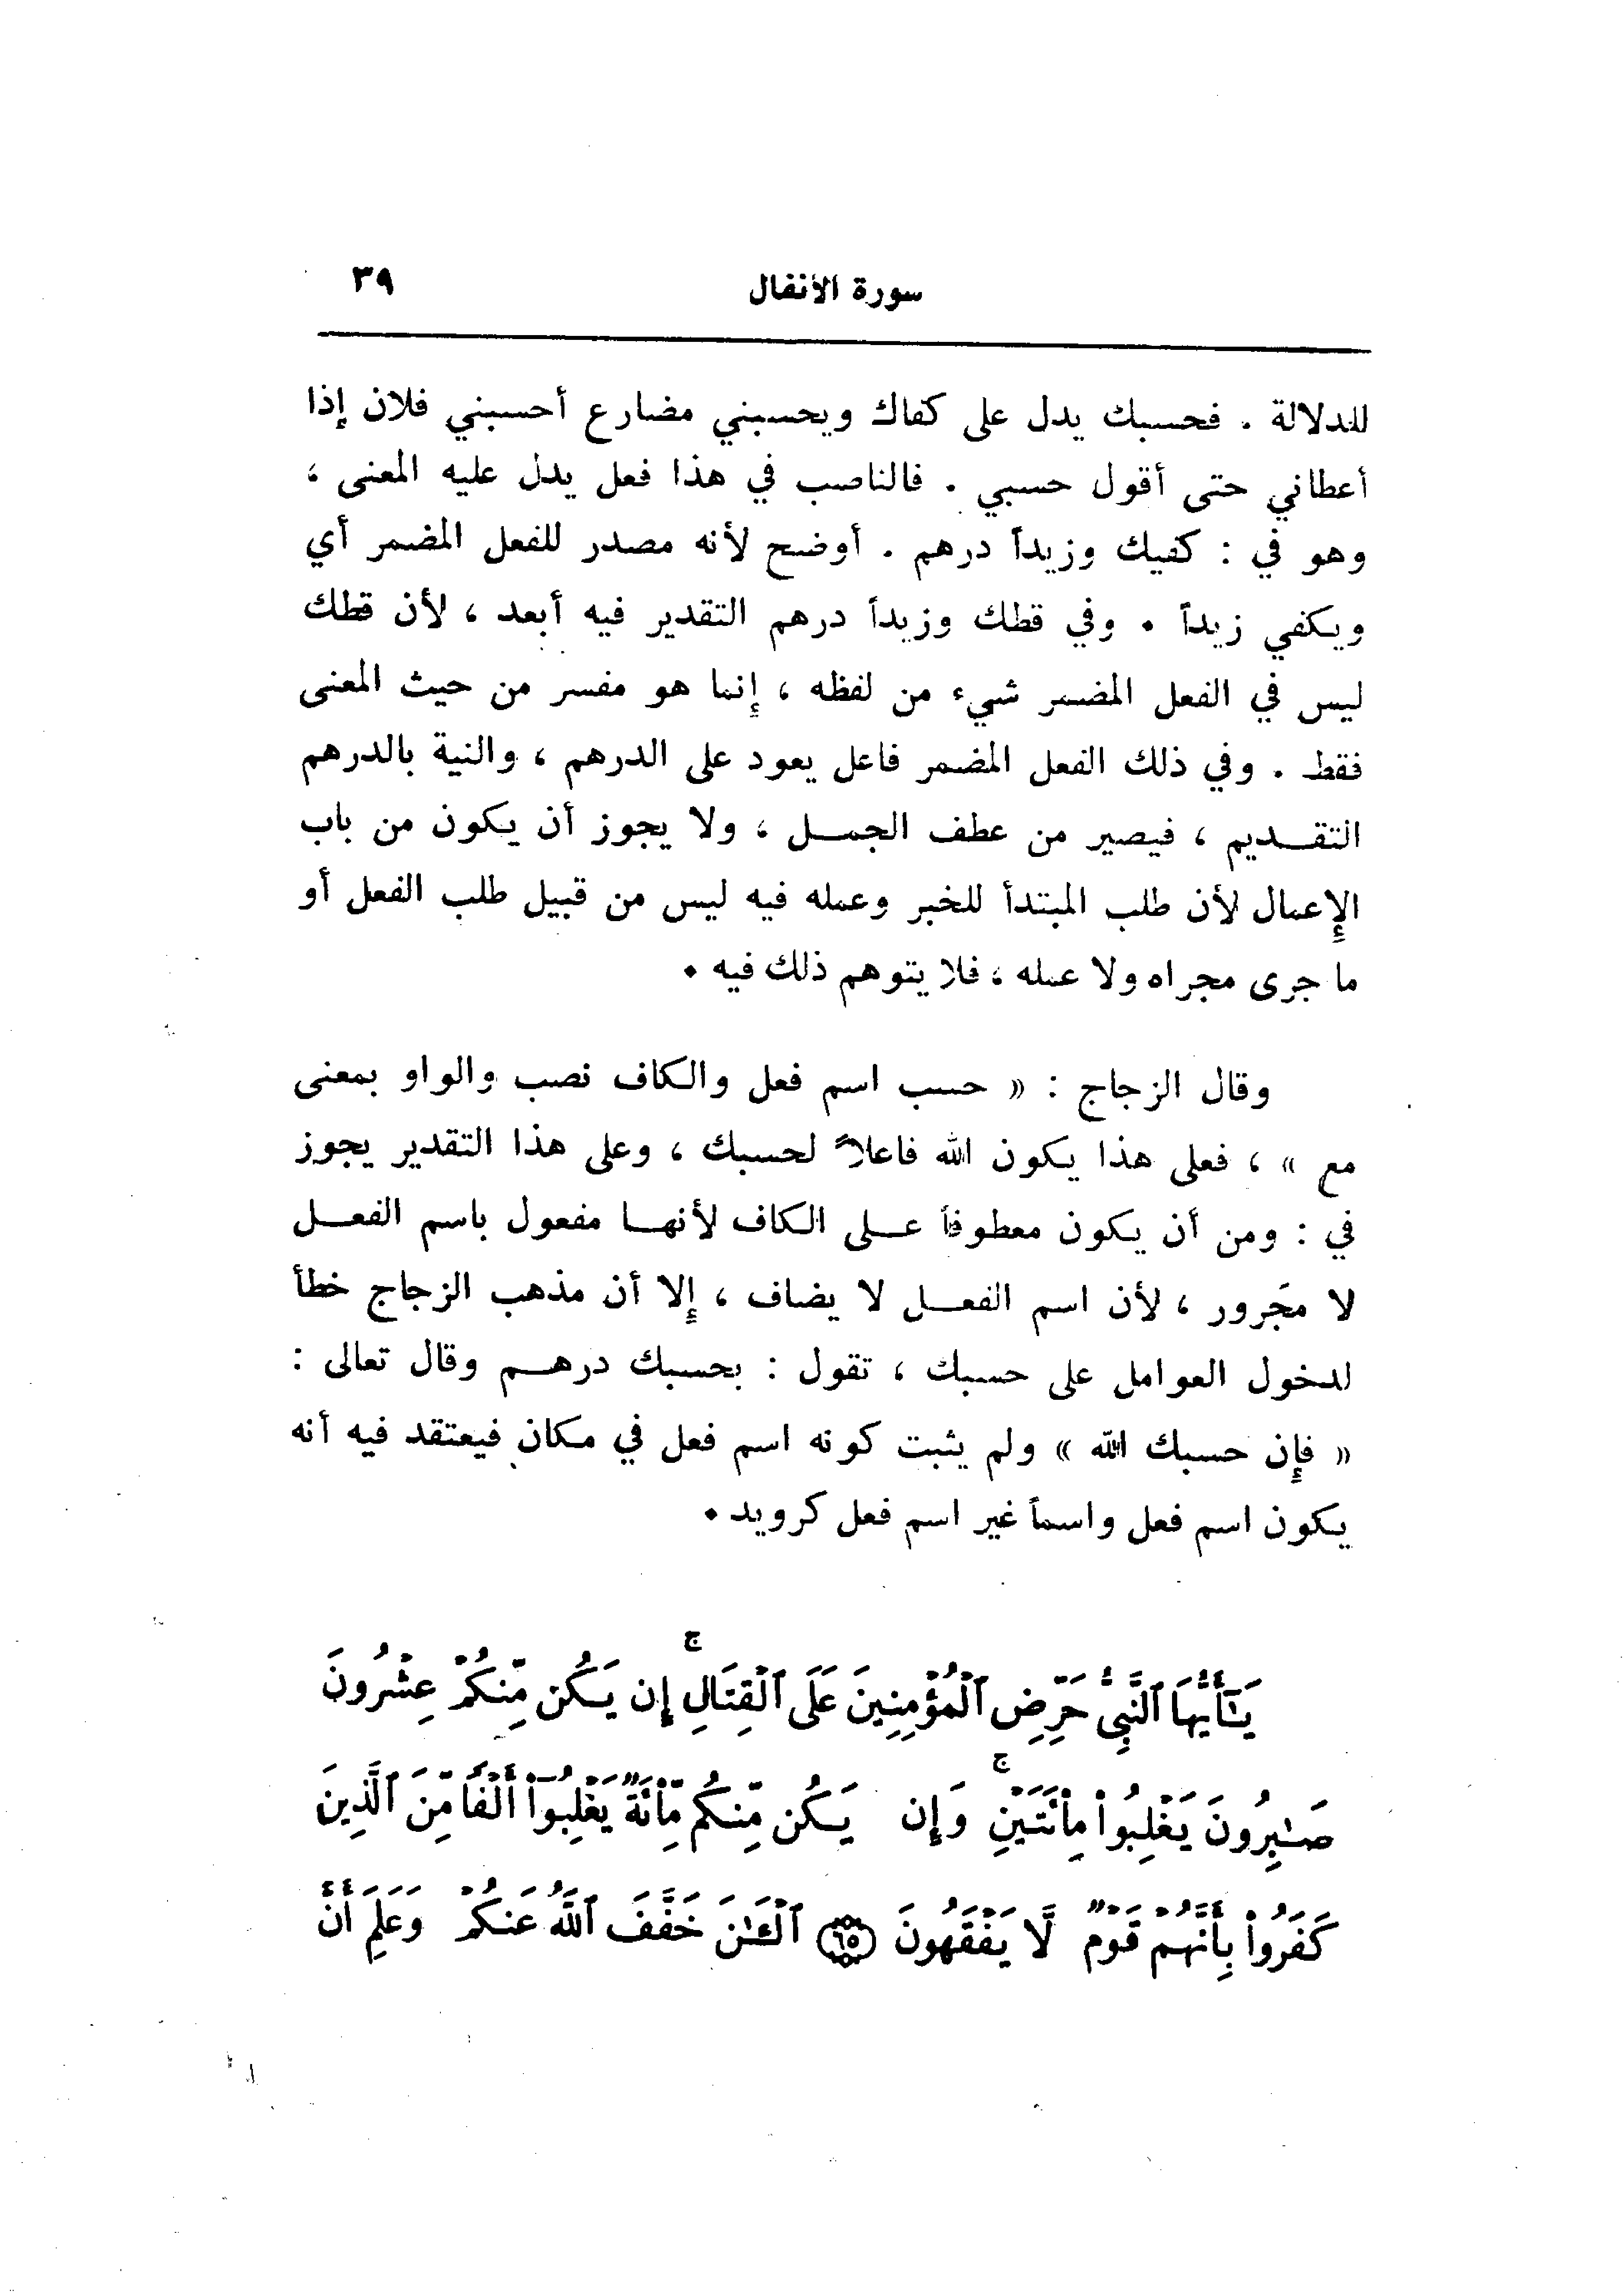 سورة الأنفال ٣٩
للدلالة . فحسبك يدل على كفاك ويحسبني مضارع أحسبني فلان إذا
أعطاني حتى أقول حسبي . فالناصب في هذا فعل يدل عليه المعنى ،
وهو في : كفيك وزيداً درهم . أوضح لأنه مصدر للفعل المضمر أي
ويكفي زيداً . وفي قطك وزيداً درهم التقدير فيه أبعد ، لأن قطك
ليس في الفعل المضمر شيء من لفظه ، إنما هو مفسر من حيث المعنى
فقط . وفي ذلك الفعل المضمر فاعل يعود على الدرهم ، والنية بالدرهم
التقديم ، فيصير من عطف الجمل ، ولا يجوز أن يكون من باب
الإعمال لأن طلب المبتدأ للخبر وعمله فيه ليس من قبيل طلب الفعل أو
ما جرى مجراه ولا عمله ، فلا يتوهم ذلك فيه .
وقال الزجاج : « حسب اسم فعل والكاف نصب والواو بمعنى
مع » ، فعلى هذا يكون الله فاعلاً لحسبك ، وعلى هذا التقدير يجوز
في : ومن أن يكون معطوفاً على الكاف لأنها مفعول باسم الفعل
لا مجرور ، لأن اسم الفعل لا يضاف ، إلا أن مذهب الزجاج خطأ
لدخول العوامل على حسبك ، تقول : بحسبك درهم وقال تعالى :
« فإن حسبك الله » ولم يثبت كونه اسم فعل في مكان فيعتقد فيه أنه
يكون اسم فعل واسماً غير اسم فعل كرويد .
يَٰٓأَيُّهَا ٱلنَّبِيُّ حَرِّضِ ٱلْمُؤْمِنِينَ عَلَى ٱلْقِتَالِ ۚ إِن يَكُن مِّنكُمْ عِشْرُونَ
صَٰبِرُونَ يَغْلِبُوا۟ مِا۟ئَتَيْنِ ۚ وَإِن يَكُن مِّنكُم مِّا۟ئَةٌ يَغْلِبُوٓا۟ أَلْفًا مِّنَ ٱلَّذِينَ
كَفَرُوا۟ بِأَنَّهُمْ قَوْمٌ لَّا يَفْقَهُونَ ٦٥ ٱلْـَٰٔنَ خَفَّفَ ٱللَّهُ عَنكُمْ وَعَلِمَ أَنَّ